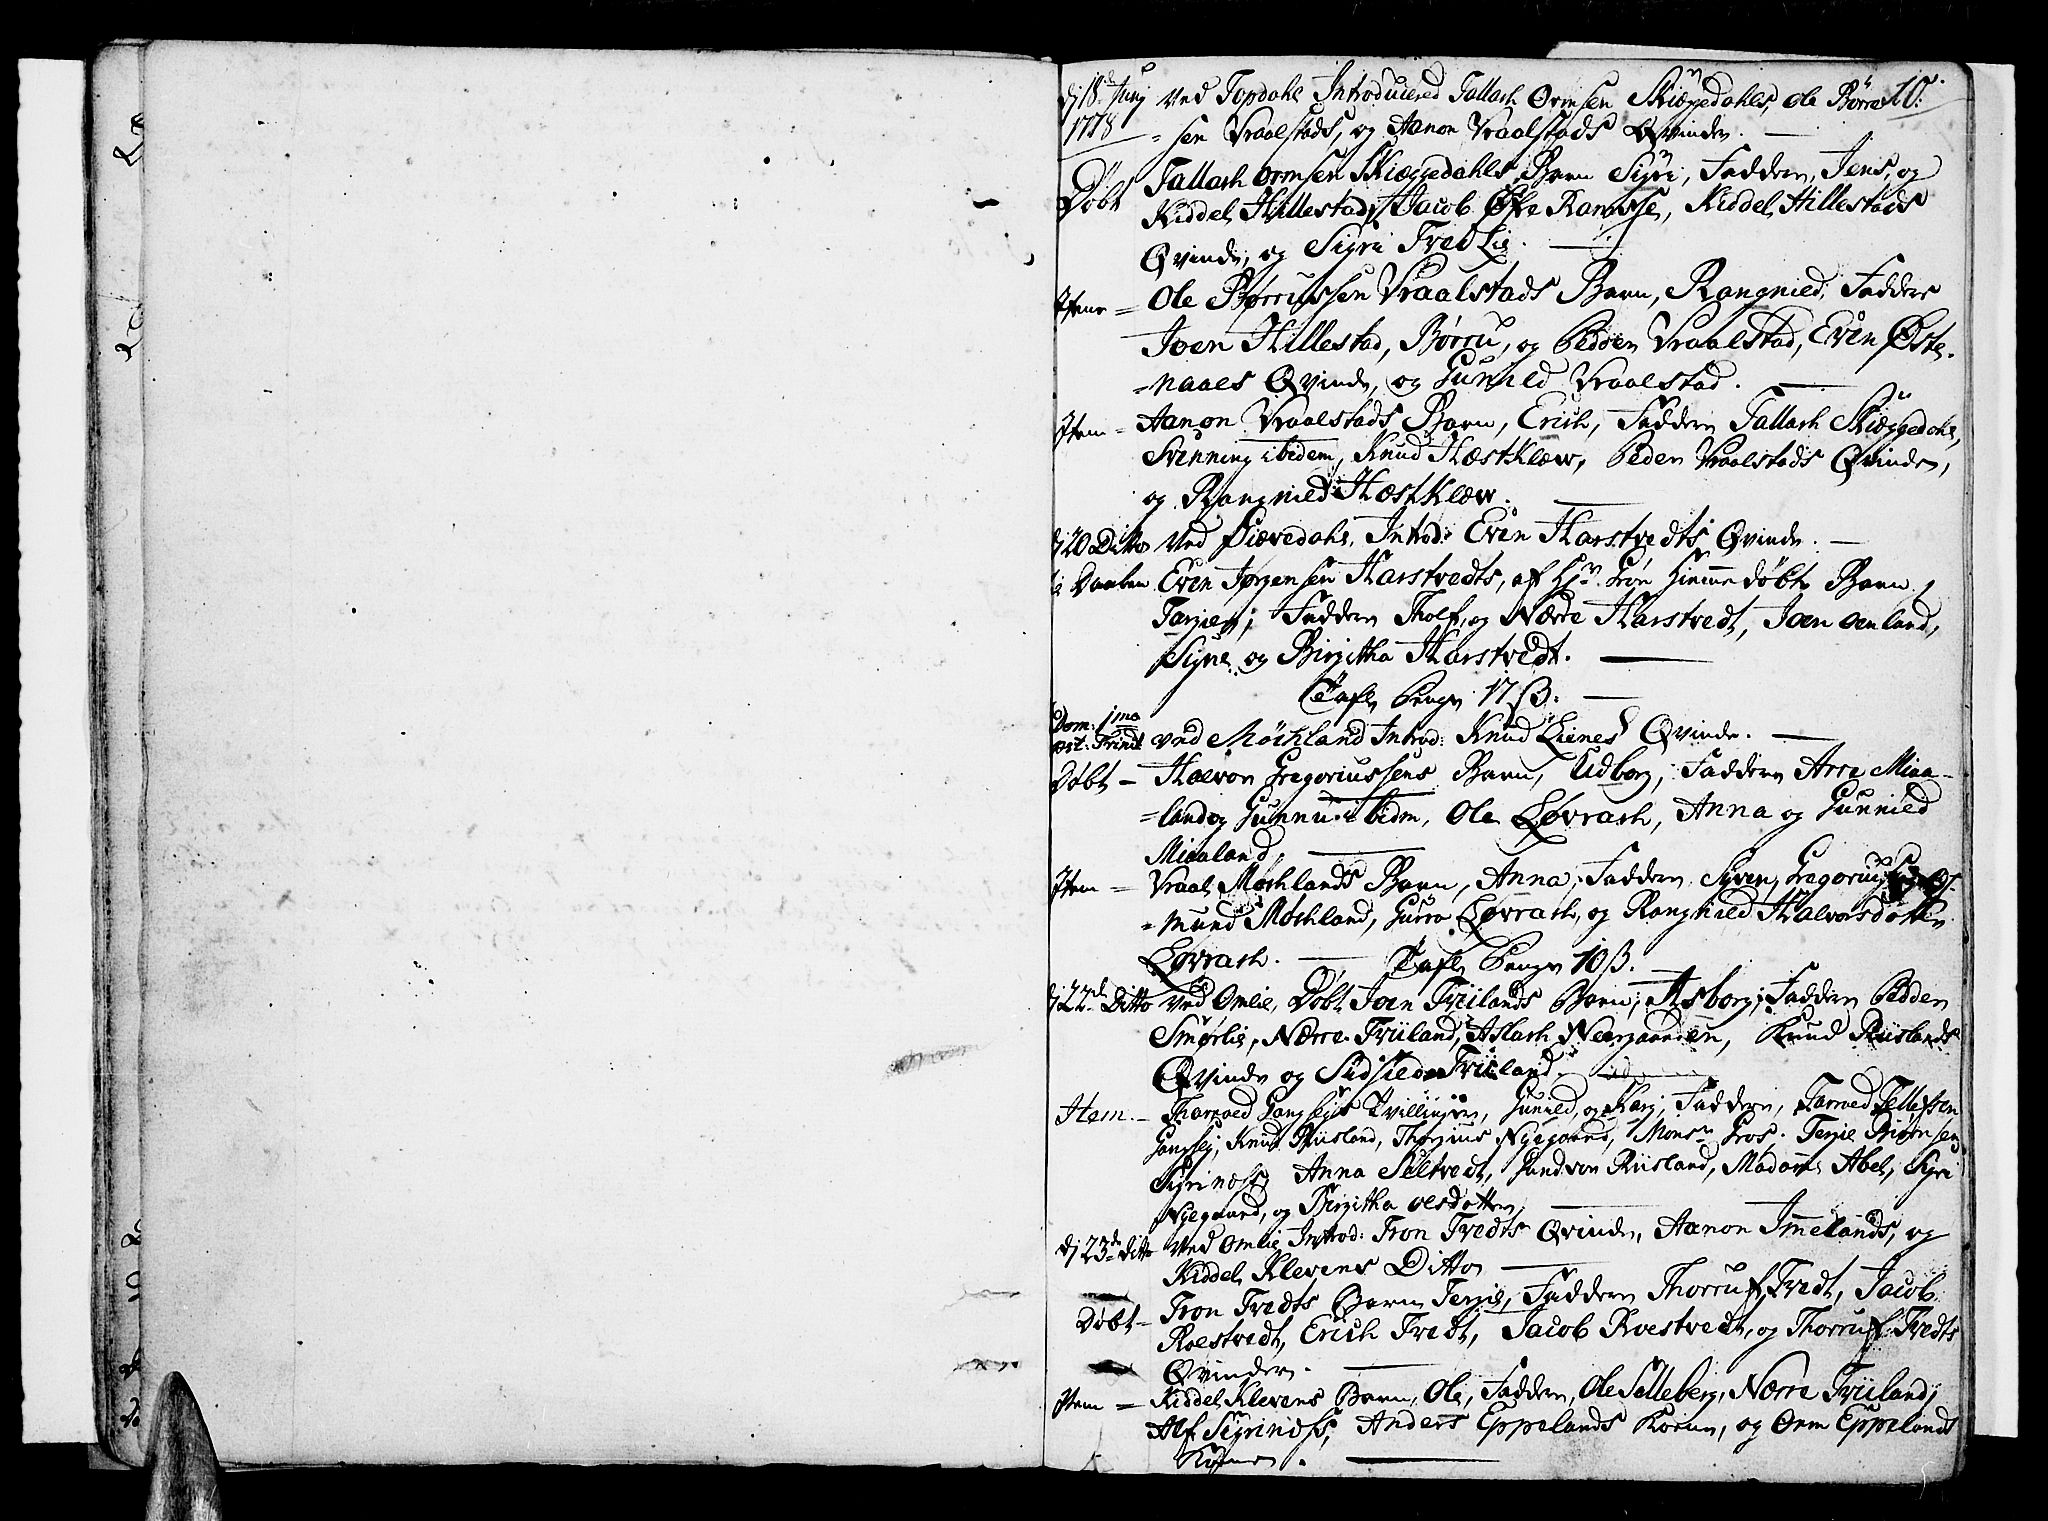 10.
dj 18de Junj Ved Topdahl Introducered Tallach Ormsen Skiæggedahls, Ole Børru-
1718 =sen Vraalstads, og Aanon Vraalstads Qvinder.
Døbt Tallach Ormsen Skiæggedahls Barn Sigri, Faddern, Jens, og
Kiddel Hillestad, Jacob Øfre Ramsse, Kiddel Hillestads
Qvinde, og Sigri Tred Lie.
Item = Ole Børrussen Vraalstads Barn, Rangnied, Faddere
Joen Hillestad, Børru, og Peder Vraalstad, Even Øste-
=naaes Qvinde, og Gunild Vraalstad.
Item = Aanon Vraalstads Barn, Erich, Faddern Tallach Skiæggedahl,
Svenning ibidem, Knud Hæstklæw, Peder Vraalstads Qvinde,
og Rangnied Hæstklæw.
dj 20 Ditto Ved Siævedahl, Introd: Even Harstvedts Qvinde.
i Daaben Even Jørgensen Harstvedts, af Hr. Grøn Hiemmedøbt Barn
Tarjer; Faddern Tholf, og Nærre Harstvedt, Joen Oenland,
Signe og Birgitha Harstvedt.
Tafle Penge 17 ß.
Dom: 1ma
post: Trinit ved Møchland Introd: Knud Lienes Qvinde.
Døbt - Halvor Gregoriussens Barn, Udborg, Faddern Arre Miaa-
=land og Gunnu ibidm, Ole Løvrach, Anna og Gunnied
Miaaland.
Item = Vraal Møchlands Barn, Anna, Faddern Siven, Gregorius, Os-
=mund Møchland, Gurro Løvrach, og Rangnield Halvorsdotter
Løvrach. Tafle Penge 10 ß.
dj 22de Ditto Ved Omlie, Døbt Joen Friilands Barn, Asborg, Faddern Pedder
Smørlie, Nærre Friiland, Aslach Neergaarden, Knud Riislands
Qvinde og Sidsield Friiland.
Item - Tharroed Gangseys Tvillinger, Gunild, og Karj, Faddern, Tarroed Tellefsen
Gangsey, Knud Riisland, Thorgius Nyegaard, Monsr. Gros. Terjie Biørnsen
Sigrinæss, Anna Seltvedt, Gundvor Riisland, Madame Abel, Sigri
Nyegaard, og Birgitha Olsdotter.
dj 23de ditto Ved Omlie Introd: Tron Tredts Qvinde, Aanon Immelands, og
Kiddel Klevens Ditto
Døbt - Tron Tredts Barn Terjie, Faddern Thorruf Tredt, Jacob
Roestvedt, Erich Tredt, Jacob Roestvedt, og Thorruf Tredts
Qvinder.
Item = Kiddel Klevens Barn, Ole, Faddern, Ole Selleberg, Nærre Friiland,
Alf Sigrinæss, Anders Eppelands Kone, og Orm Eppelands
Kone.